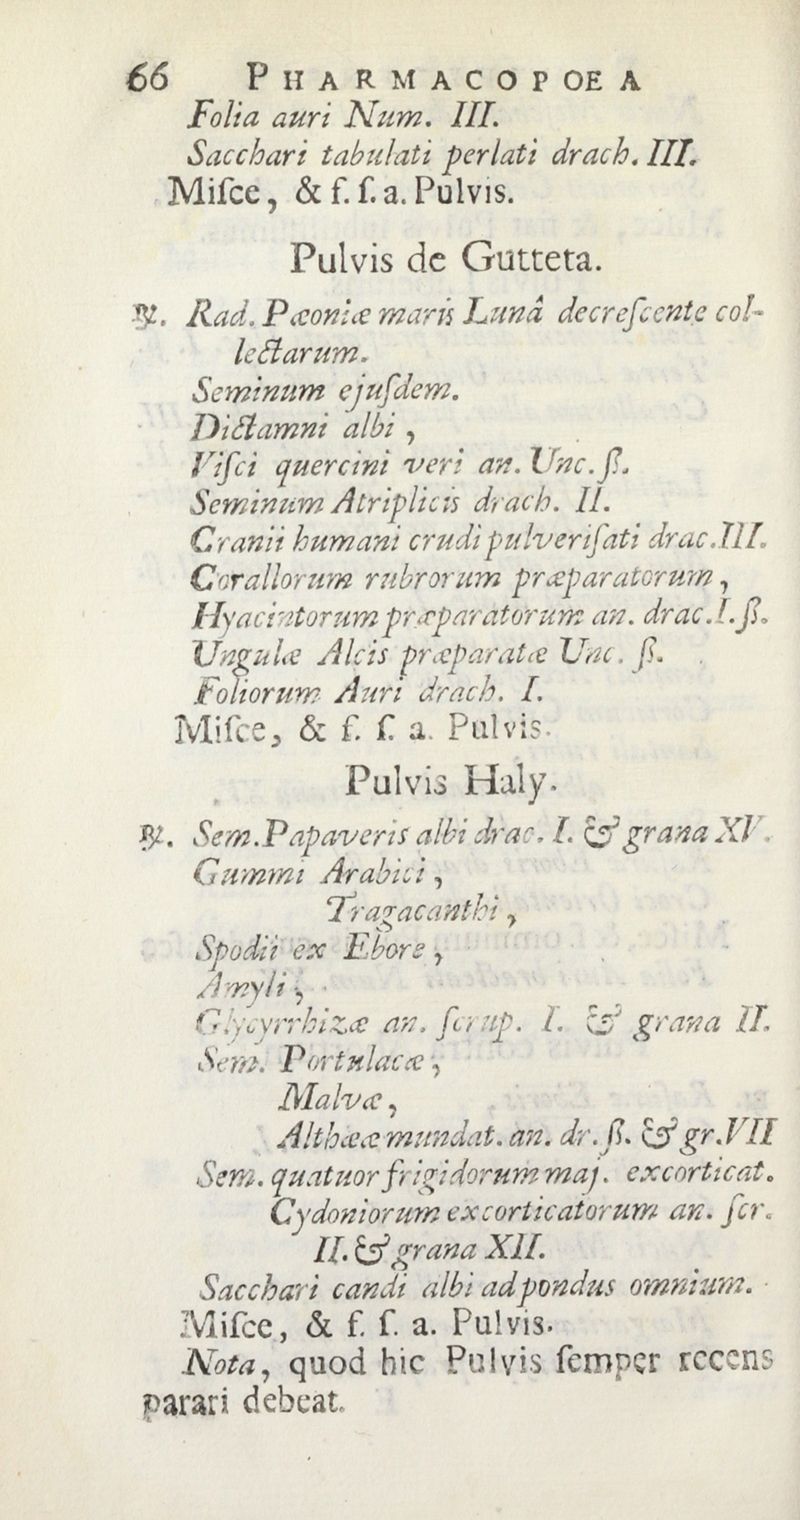 66 PHARMACOPOEA
Folia auri Num. III.
Sacchari tabulati perlati drach. III.
Miſce, & f. ſ. a. Pulvis.
Pulvis de Gutteta.
℞. Rad. Pæoniæ maris Lunâ decreſcente col-
lectarum.
Seminum ejuſdem.
Dictamni albi,
Viſci quercini veri an. Unc. ß.
Seminum Atriplicis drach. II.
Cranii humani crudi pulveriſati drac. III.
Corallorum rubrorum præparatorum,
Hyacintorum præparatorum an. drac. I. ß.
Ungulæ Alcis præparatæ Unc. ß.
Foliorum Auri drach. I.
Miſce, & f. ſ. a. Pulvis.
Pulvis Haly.
℞. Sem. Papaveris albi drac. I. & grana XV.
Gummi Arabici,
Tragacanthi,
Spodii ex Ebore,
Amyli,
Glycyrrhizæ an. ſcrup. I. & grana II.
Sem. Portulacæ,
Malvæ,
Althææ mundat. an. dr. ß. & gr. VII
Sem. quatuor frigidorum maj. excorticat.
Cydoniorum excorticatorum an. ſcr.
II. & grana XII.
Sacchari candi albi ad pondus omnium.
Miſce, & f. ſ. a. Pulvis.
Nota, quod hic Pulvis ſemper recens
parari debeat.